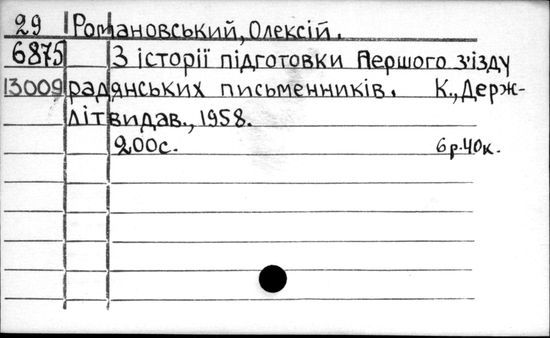 29 Романовський, Олексій.
6875 З історії підготовки Першого з'їзду
13009 радянських письменників. К., Держ-
літвидав., 1958.
200с. 6р.40к.